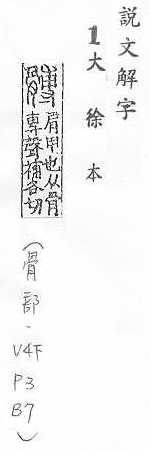 説文解字
1大徐本
髆
肩甲也从骨
尃聲補各切
(骨部、V4下P3B7)